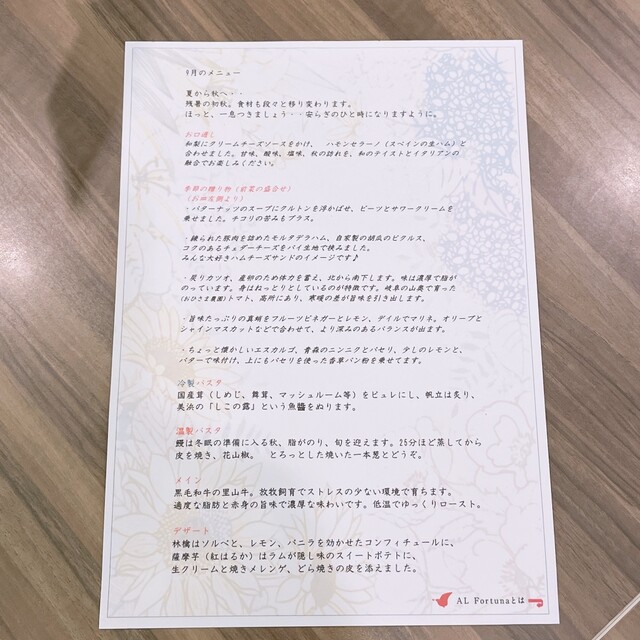 9月のメニュー
夏から秋へ・・
残暑の初秋。食材も段々と移り変わります。
ほっと、一息つきましょう・・安らぎのひと時になりますように。
お口通し
和梨にクリームチーズソースをかけ、 ハモンセラーノ（スペインの生ハム）と
合わせました。甘味、酸味、塩味、秋の訪れを、和のテイストとイタリアンの
融合でお楽しみください。
季節の贈り物（前菜の盛合せ）
（お皿左側より）
・バターナッツのスープにクルトンを浮かばせ、ビーツとサワークリームを
乗せました。チコリの苦みもプラス。
・練られた豚肉を詰めたモルタデラハム、自家製の胡瓜のピクルス、
コクのあるチェダーチーズをパイ生地で挟みました。
みんな大好きハムチーズサンドのイメージです♪
・炙りカツオ、産卵のため体力を蓄え、北から南下します。味は濃厚で脂が
のっています。身はねっとりとしているのが特徴です。岐阜の山奥で育った
(おひさま農園)トマト、高所にあり、寒暖の差が旨味を引き出します。
・旨味たっぷりの真蛸をフルーツビネガーとレモン、デイルでマリネ。オリーブと
シャインマスカットなどで合わせて、より深みのあるバランスが出ます。
・ちょっと懐かしいエスカルゴ、青森のニンニクとパセリ、少しのレモンと、
バターで味付け、上にもパセリを使った香草パン粉を乗せてます。
冷製パスタ
国産茸（しめじ、舞茸、マッシュルーム等）をピュレにし、帆立は炙り、
美浜の「しこの露」という魚醤をぬります。
温製パスタ
鰻は冬眠の準備に入る秋、脂がのり、旬を迎えます。25分ほど蒸してから
皮を焼き、花山椒。 とろっとした焼いた一本葱とどうぞ。
メイン
黒毛和牛の里山牛。放牧飼育でストレスの少ない環境で育ちます。
適度な脂肪と赤身の旨味で濃厚な味わいです。低温でゆっくりロースト。
デザート
林檎はソルベと、レモン、バニラを効かせたコンフィチュールに、
薩摩芋（紅はるか）はラムが隠し味のスイートポテトに、
生クリームと焼きメレンゲ、どら焼きの皮を添えました。
AL Fortunaとは